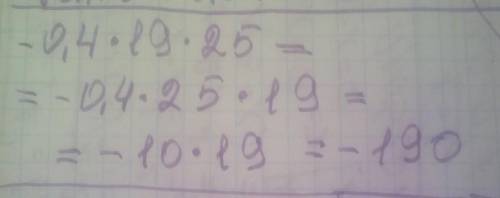 -0,4·19·25 =
= -0,4·25·19 =
= -10·19 = -190